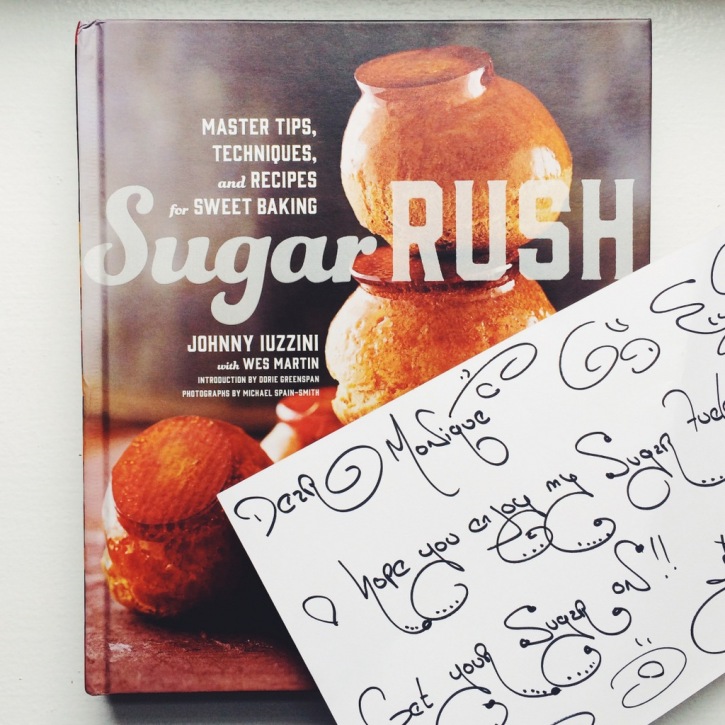 MASTER TIPS,
TECHNIQUES,
and RECIPES
for SWEET BAKING
Sugar RUSH
JOHNNY IUZZINI
with WES MARTIN
INTRODUCTION BY DORIE GREENSPAN
PHOTOGRAPHS BY MICHAEL SPAIN-SMITH
Dear Monique
I hope you enjoy my Sugar Fuele
Get your Sugar on!!